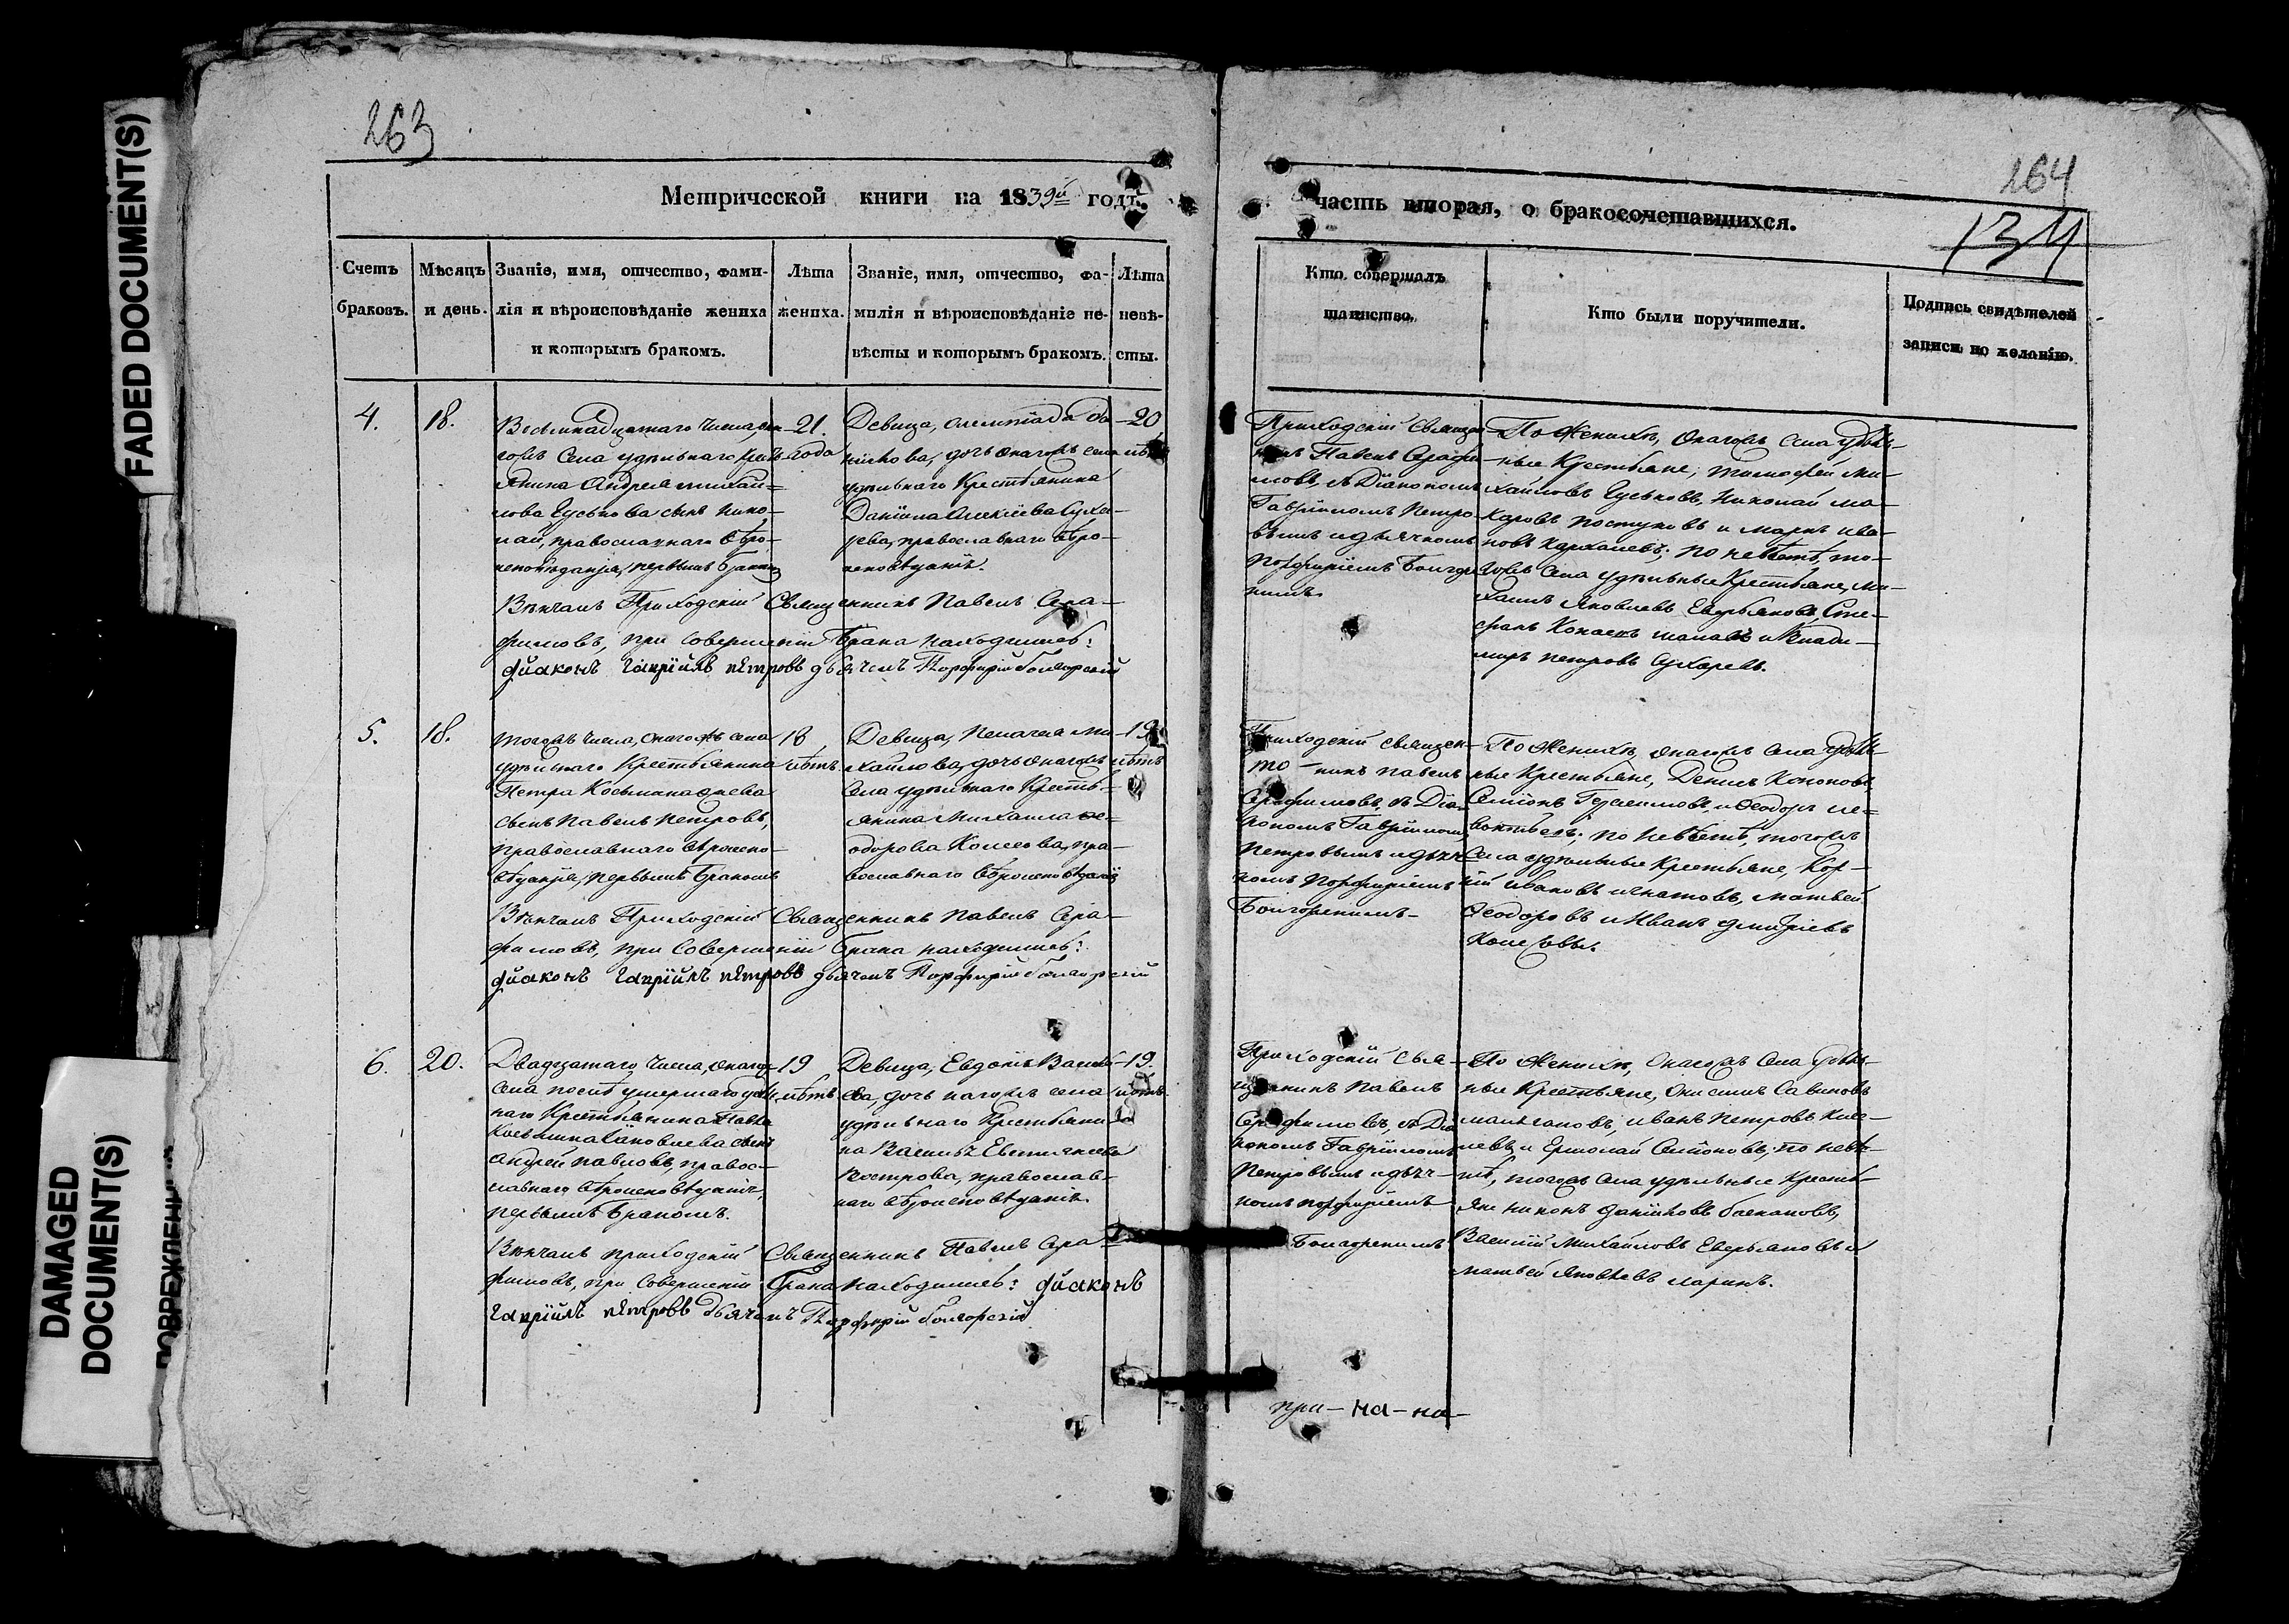 FADED DOCUMENT(S)
DAMAGED
DOCUMENT(S)
263
Метрической книги на 1839й годъ.
Счетъ
браковъ.
Мѣсяцъ
и день.
Званіе, имя, отчество, фами-
лія и вѣроисповѣданіе жениха
и которымъ бракомъ.
Лѣта
жениха.
Званіе, имя, отчество, фа-
милія и вѣроисповѣданіе не-
вѣсты и которымъ бракомъ.
Лѣта
невѣ-
сты.
4.
18.
Восемнадцатаго числа,
села удѣльнаго Кресть-
янина Андрея михай-
лова Гуськова сынъ нико-
лай, православнаго вѣро-
исповѣданія, первымъ бракомъ
21.
года
Девица,
дочь онагожъ села
удѣльнаго Крестьянина
Даніила Алексіева Суха-
рева, православнаго вѣро-
исповѣданія.
20
лѣтъ
Вѣнчалъ Приходскій Священникъ Павелъ Сера-
фимовъ, при совершеніи брака находились:
діаконъ гавріилъ петровъ дьячекъ Порфирій болгорскій
5.
18.
тогожъ числа, онагожъ села
удѣльнаго Крестьянина
Петра Косьмина
сынъ Павелъ Петровъ,
православнаго вѣроиспо-
вѣданія, первымъ бракомъ
18
лѣтъ
Девица, Пелагея Ми-
хайлова, дочь онагожъ
села удѣльнаго Кресть-
янина Михаила Фе-
одорова Колесова, пра-
вославнаго вѣроисповѣданія
19
лѣтъ
Вѣнчалъ Приходскій Священникъ Павелъ Сера-
фимовъ, при совершеніи брака находились:
діаконъ гавріилъ петровъ дьячекъ Порфирій болгорскій
6.
20.
Двадцатаго числа, онагожъ
села послѣ умершаго удѣль-
наго Крестьянина Павла
Косьмина сынъ
андрей павловъ, правос-
лавнаго вѣроисповѣданія,
первымъ бракомъ.
19
лѣтъ
Девица, Евдокія Василь-
ева, дочь онагожъ села
удѣльнаго Крестьяни-
на Василья
Вострова, православ-
наго вѣроисповѣданія.
19.
лѣтъ
Вѣнчалъ приходскій Священникъ Павелъ Сера-
фимовъ, при совершеніи брака находились: діаконъ
гавріилъ петровъ дьячекъ Порфирій болгорскій
264
134
часть вторая, о бракосочетавшихся.
Кто совершалъ
таинство.
Кто были поручители.
Подпись свидѣтелей
записи по желанію.
Приходскій Священ-
никъ Павелъ Серафи-
мовъ, съ Діакономъ
Гавріиломъ Петро-
вымъ и дьячкомъ
Порфиріемъ Болгор-
скимъ.
По Женихѣ, онагожъ села удѣль-
ные Крестьяне, тимофей ми-
хайловъ Гуськовъ, николай ма-
каровъ постуховъ и маркъ ива-
новъ; по невѣстѣ, то-
гожъ села удѣльные Крестьяне, ми-
хаилъ Яковлевъ Еверьяновъ, Сте-
фанъ и влади-
миръ петровъ Сухаревъ.
Приходскій священ-
то никъ павелъ
Серафимовъ, съ Діа-
кономъ Гавріиломъ
Петровымъ и дьяч-
комъ Порфиріемъ
Болгорскимъ
По Женихѣ, онагожъ села удѣль-
ные Крестьяне, Денисъ Кононовъ,
Семіонъ Герасимовъ, и Феодоръ
по невѣстѣ, тогожъ
села удѣльные Крестьяне,
Ивановъ игнатовъ, матвей
Феодоровъ и Иванъ дмитріевъ
Колесовы.
Приходскій Свя-
щенникъ Павелъ
Серафимовъ, съ Діа-
кономъ Гавріиломъ
Петровымъ и дьяч-
комъ порфиріемъ
Болгорскимъ
По Женихѣ, онагожъ села удѣль-
ные Крестьяне, Онисимъ Савиновъ
иванъ Петровъ
и Ермолай Семіоновъ; по невѣ-
стѣ, тогожъ села удѣльные Кресть-
яне никонъ
Василій Михайловъ Еверьяновъ и
матвей Яковлевъ ларинъ.
при- на- на-